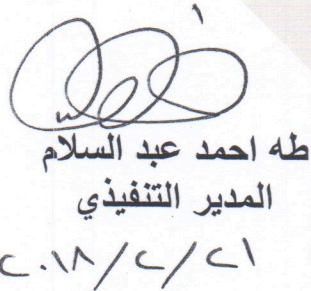 طه احمد عبد السلام
المدير التنفيذي
٢٠١٨/٢/٢١